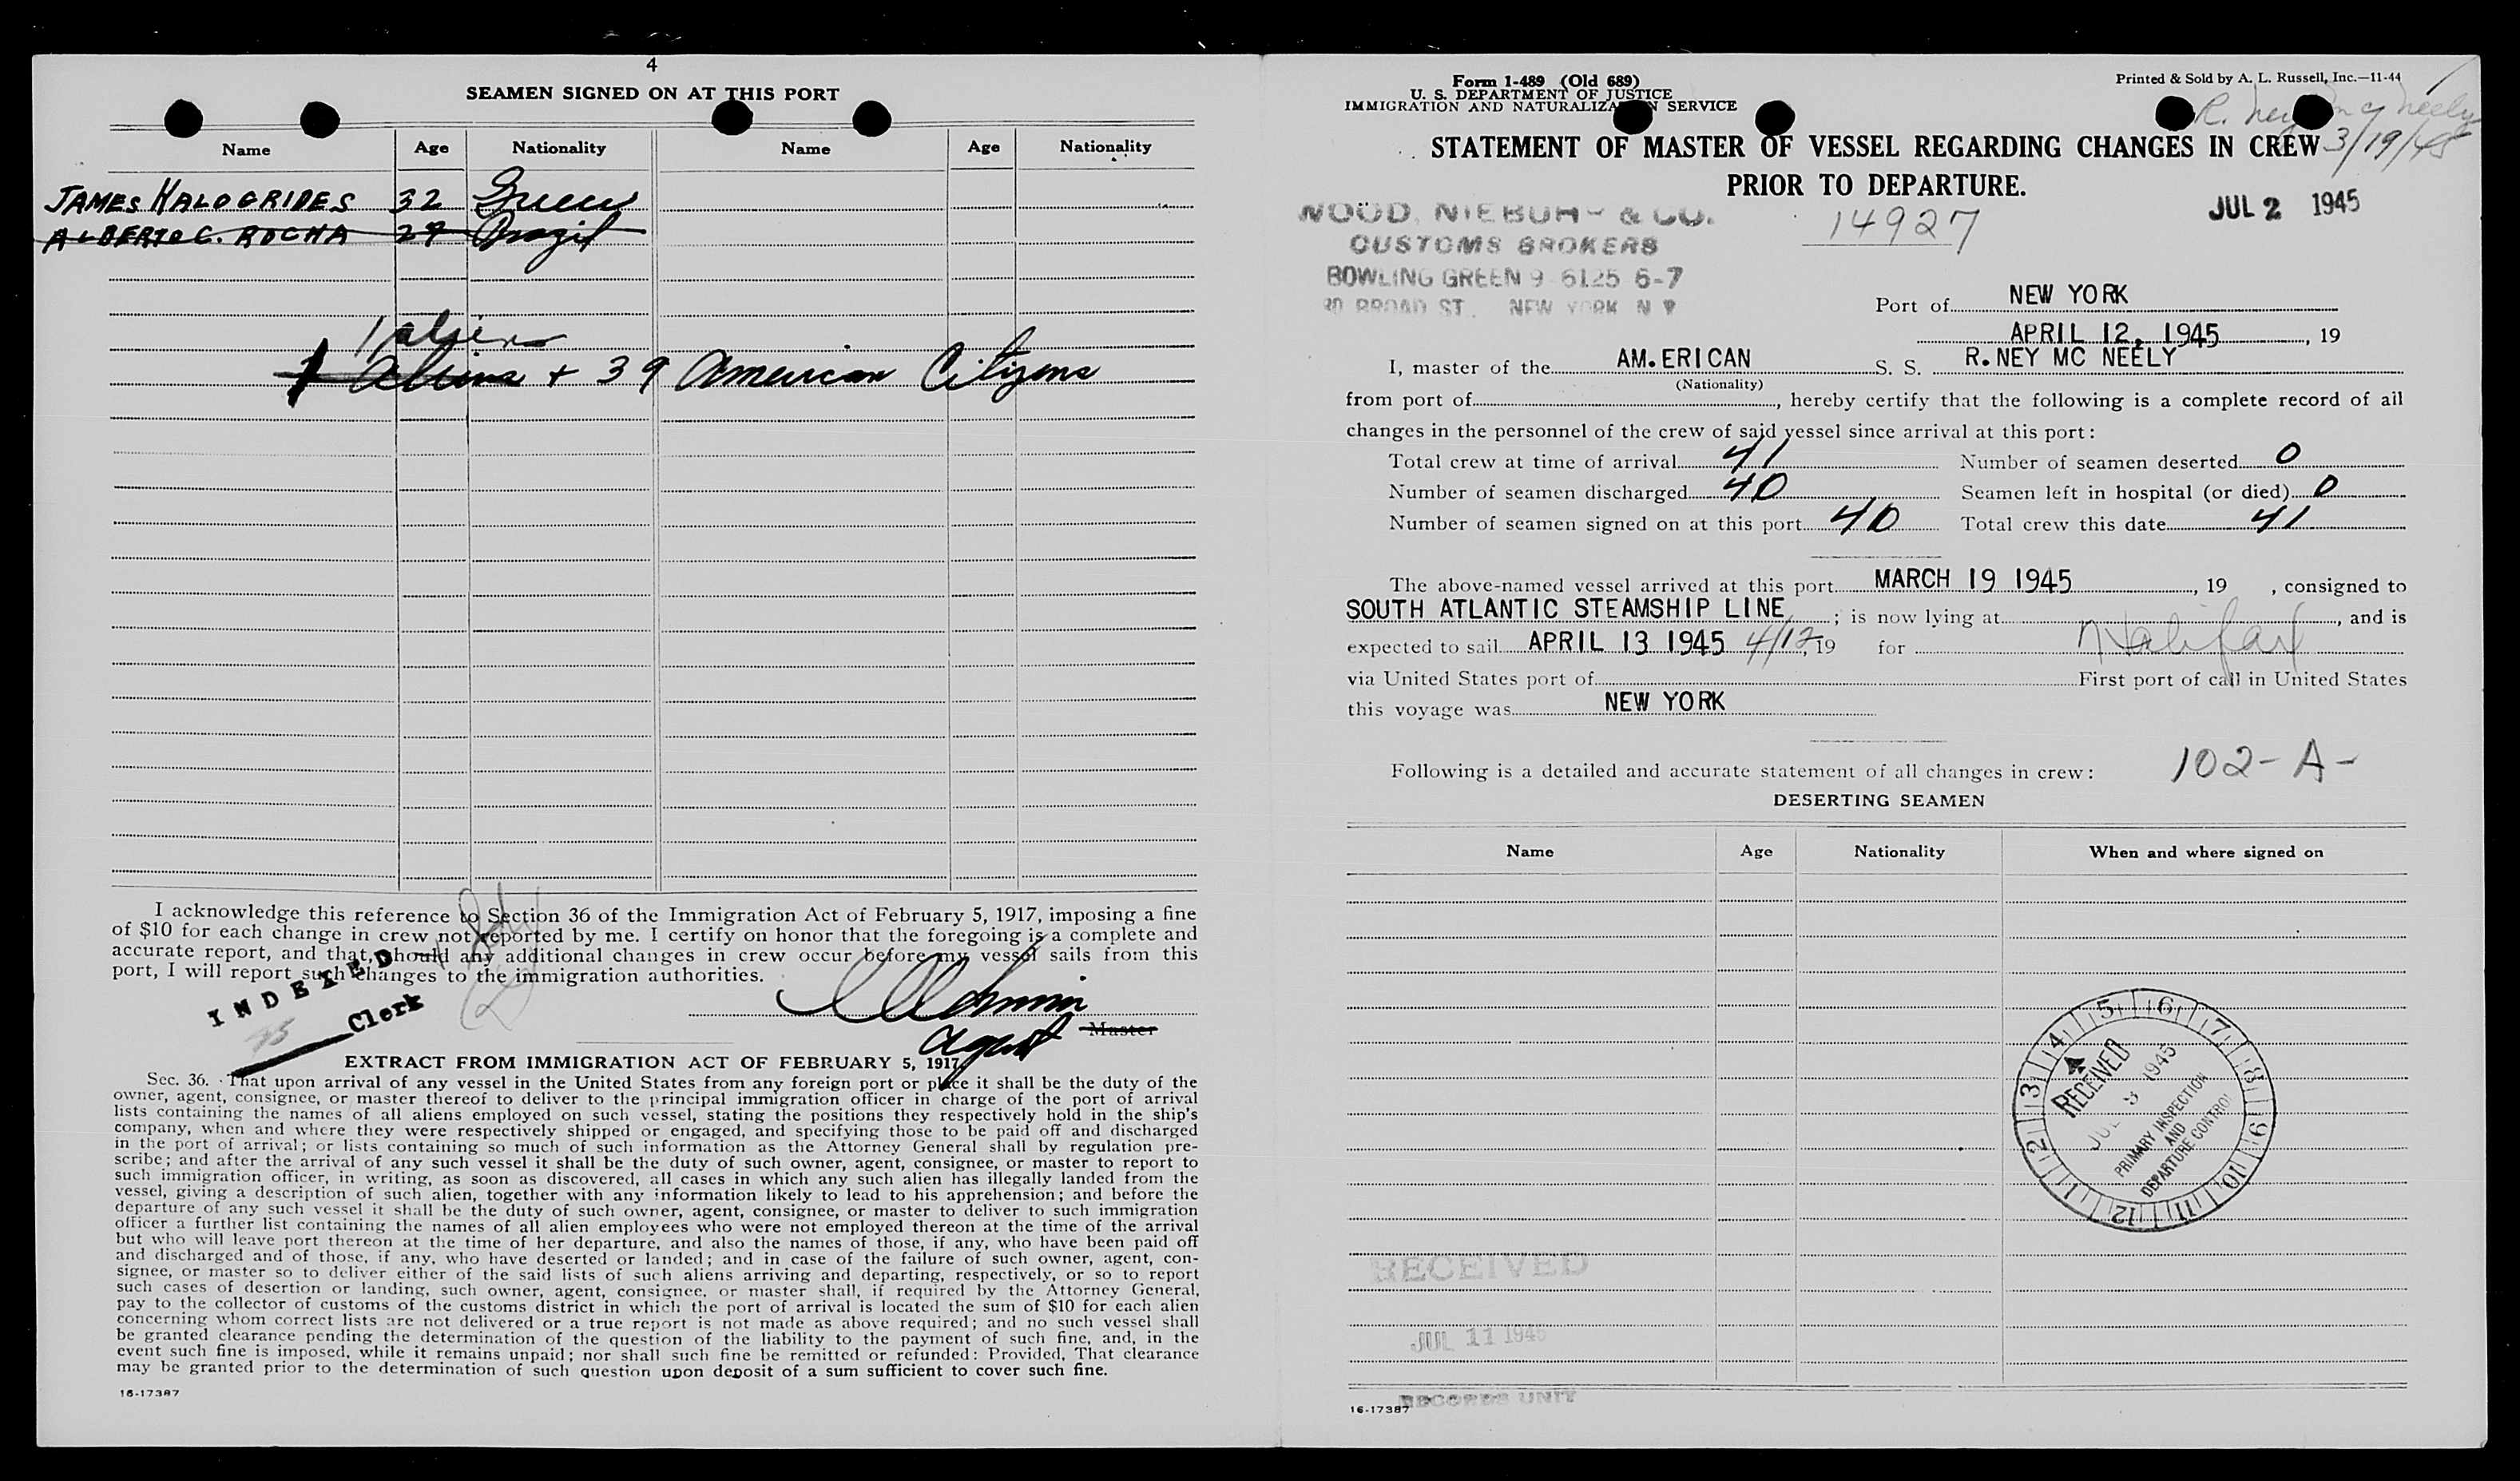 4
SEAMEN SIGNED ON AT THIS PORT
Name Age Nationality Name Age Nationality
JAMES HALOGRIDES 32 Greece
ALBERTO C. ROCHA 29 Brazil
1 alien
Aliens + 39 American Citizens
I acknowledge this reference to Section 36 of the Immigration Act of February 5, 1917, imposing a fine
of $10 for each change in crew not reported by me. I certify on honor that the foregoing is a complete and
accurate report, and that, should any additional changes in crew occur before my vessel sails from this
port, I will report such changes to the immigration authorities.
INDEXED
Clerk
Agent Master
EXTRACT FROM IMMIGRATION ACT OF FEBRUARY 5, 1917
Sec. 36. That upon arrival of any vessel in the United States from any foreign port or place it shall be the duty of the
owner, agent, consignee, or master thereof to deliver to the principal immigration officer in charge of the port of arrival
lists containing the names of all aliens employed on such vessel, stating the positions they respectively hold in the ship's
company, when and where they were respectively shipped or engaged, and specifying those to be paid off and discharged
in the port of arrival; or lists containing so much of such information as the Attorney General shall by regulation pre-
scribe; and after the arrival of any such vessel it shall be the duty of such owner, agent, consignee, or master to report to
such immigration officer, in writing, as soon as discovered, all cases in which any such alien has illegally landed from the
vessel, giving a description of such alien, together with any information likely to lead to his apprehension; and before the
departure of any such vessel it shall be the duty of such owner, agent, consignee, or master to deliver to such immigration
officer a further list containing the names of all alien employees who were not employed thereon at the time of the arrival
but who will leave port thereon at the time of her departure, and also the names of those, if any, who have been paid off
and discharged and of those, if any, who have deserted or landed; and in case of the failure of such owner, agent, con-
signee, or master so to deliver either of the said lists of such aliens arriving and departing, respectively, or so to report
such cases of desertion or landing, such owner, agent, consignee, or master shall, if required by the Attorney General,
pay to the collector of customs of the customs district in which the port of arrival is located the sum of $10 for each alien
concerning whom correct lists are not delivered or a true report is not made as above required; and no such vessel shall
be granted clearance pending the determination of the question of the liability to the payment of such fine, and, in the
event such fine is imposed, while it remains unpaid; nor shall such fine be remitted or refunded: Provided, That clearance
may be granted prior to the determination of such question upon deposit of a sum sufficient to cover such fine.
16-17387
Form 1-489 (Old 689)
U. S. DEPARTMENT OF JUSTICE
IMMIGRATION AND NATURALIZATION SERVICE
Printed & Sold by A. L. Russell, Inc.—11-44
R. Ney Mc Neely
3/19/45
STATEMENT OF MASTER OF VESSEL REGARDING CHANGES IN CREW
PRIOR TO DEPARTURE.
JUL 2 1945
WOOD, NIEBUHR & CO.
CUSTOMS BROKERS
BOWLING GREEN 9 6125 6-7
80 BROAD ST. NEW YORK N Y
14927
Port of NEW YORK
APRIL 12, 1945, 19
I, master of the AM.ERICAN S. S. R.NEY MC NEELY
(Nationality)
from port of , hereby certify that the following is a complete record of all
changes in the personnel of the crew of said vessel since arrival at this port:
Total crew at time of arrival 41 Number of seamen deserted 0
Number of seamen discharged 40 Seamen left in hospital (or died) 0
Number of seamen signed on at this port 40 Total crew this date 41
The above-named vessel arrived at this port MARCH 19 1945, 19 , consigned to
SOUTH ATLANTIC STEAMSHIP LINE ; is now lying at , and is
expected to sail APRIL 13 1945 4/12, 19 for Halifax
via United States port of First port of call in United States
this voyage was NEW YORK
Following is a detailed and accurate statement of all changes in crew: 102-A-
DESERTING SEAMEN
Name Age Nationality When and where signed on
1 2 3 4 5 6 7 8 9 10 11 12
A
RECEIVED
1945
PRIMARY INSPECTION
AND
DEPARTURE CONTROL
RECEIVED
JUL 11 1945
RECORDS UNIT
16-17387